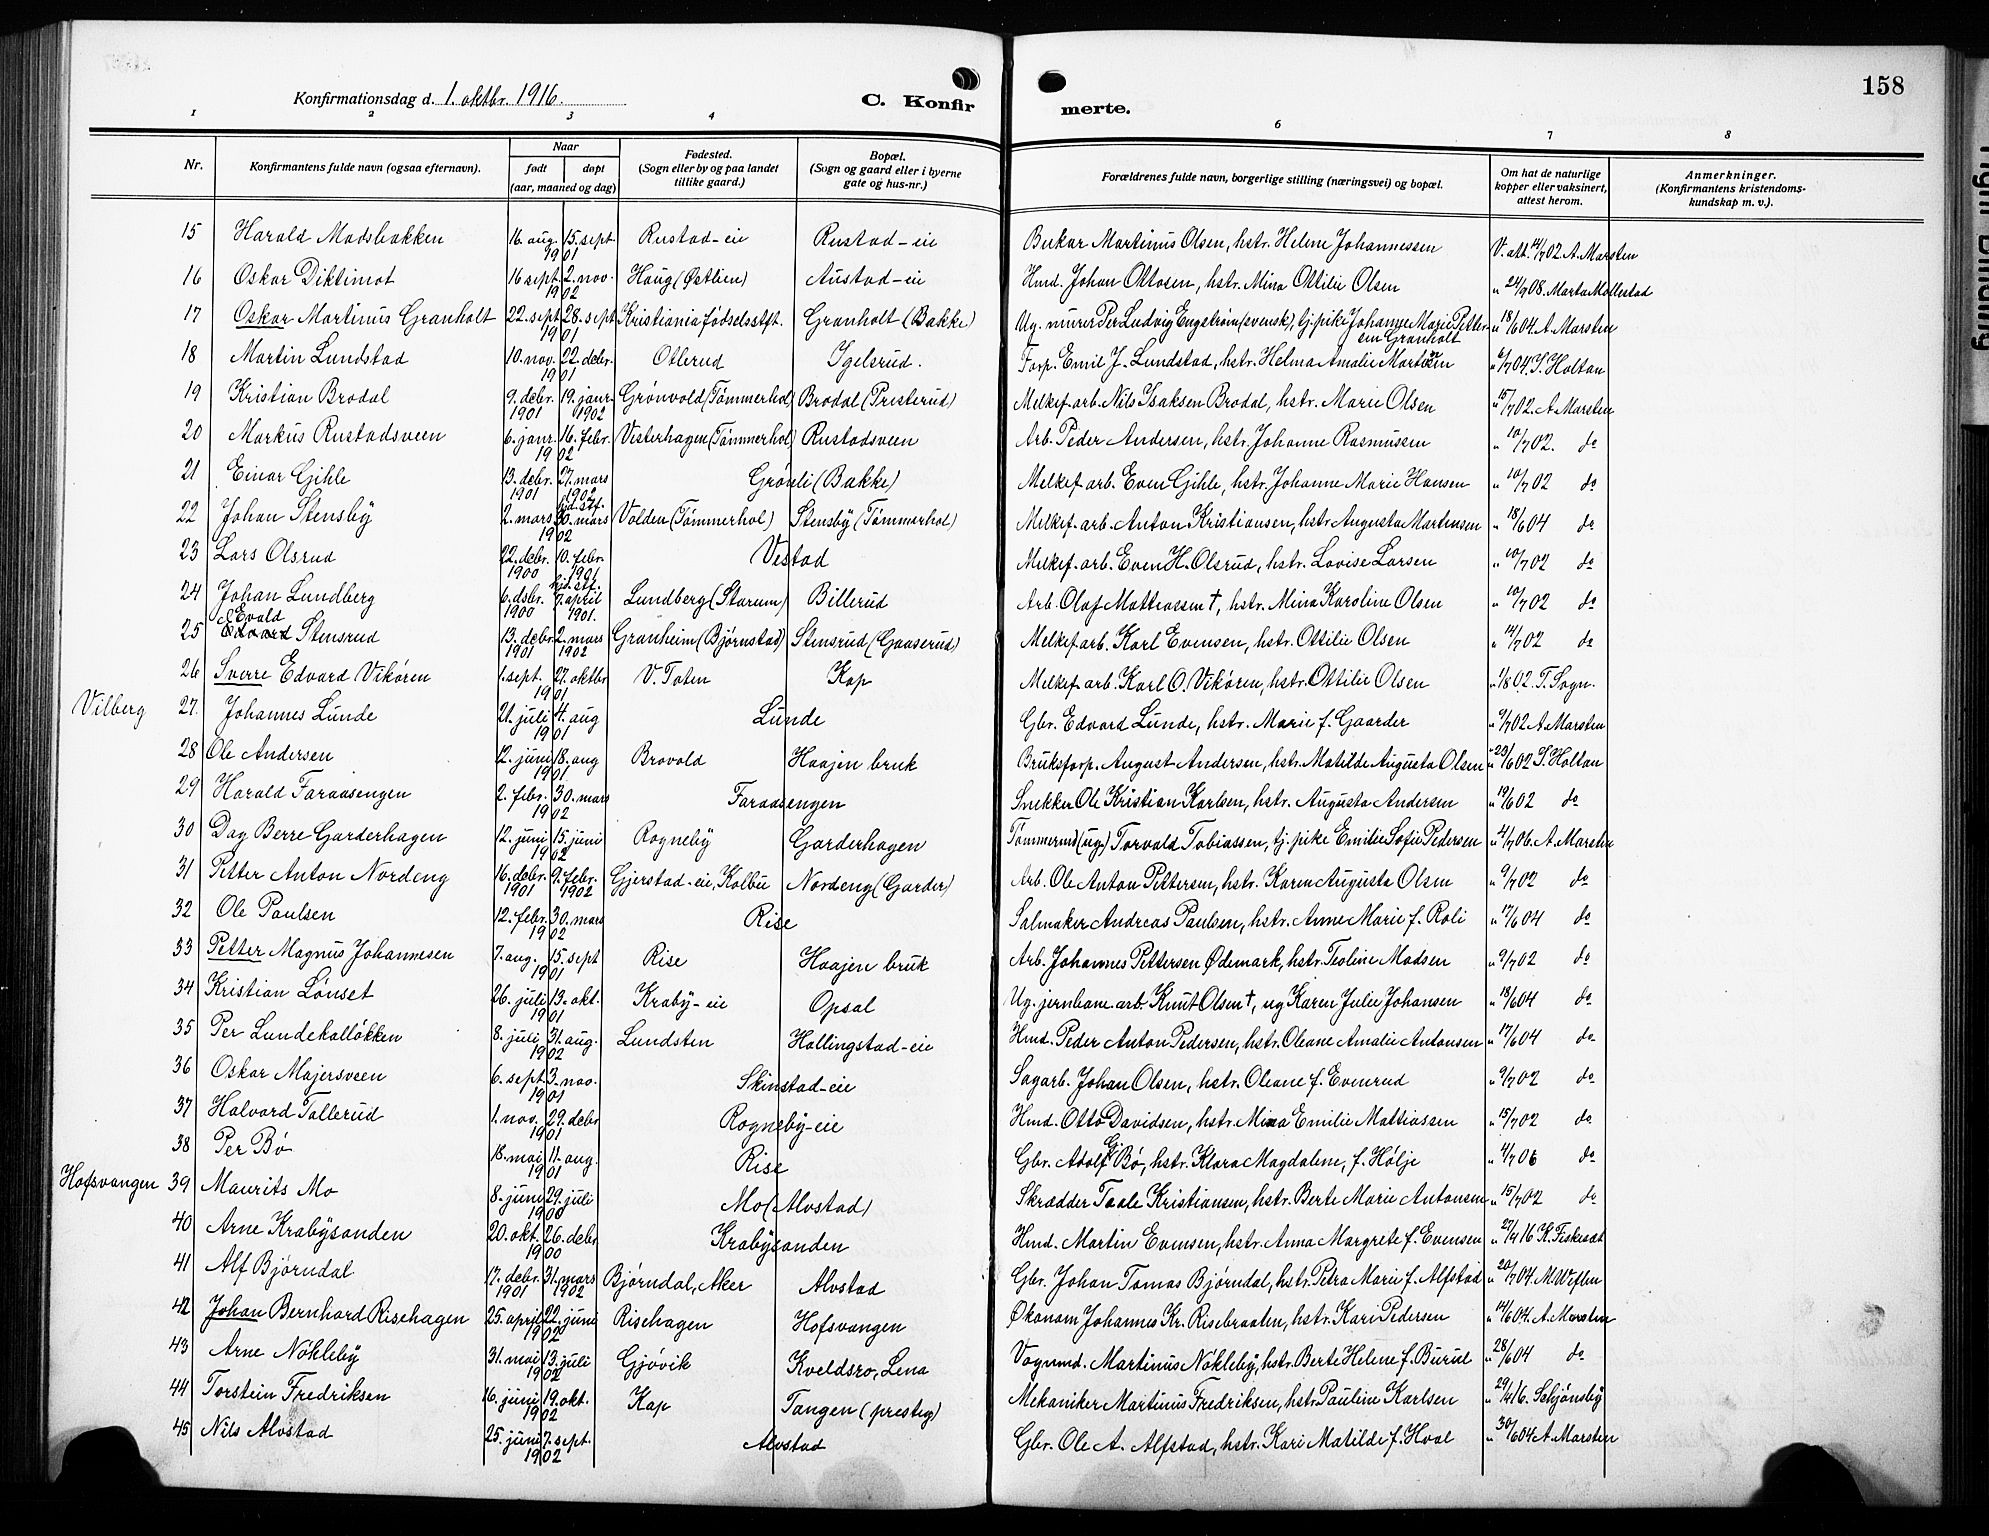 158
Konfirmationsdag d. 1. oktbr. 1916. C. Konfirmerte.
1 2 3 4 6 7 8
Nr. Konfirmantens fulde navn (ogsaa efternavn). Naar født døpt (aar, maaned og dag) Fødested. (Sogn eller by og paa landet tillike gaard.) Bopæl. (Sogn og gaard eller i byerne gate og hus-nr.) Forældrenes fulde navn, borgerlige stilling (næringsvei) og bopæl. Om hat de naturlige kopper eller vaksinert, attest herom. Anmerkninger. (Konfirmantens kristendoms-kundskap m. v.).
15 Harald Madsbakken 16. aug. 15. sept. 1901 Rustad-eie Rustad-eie Buskar Martinus Olsen, hstr. Helene Johannessen V. att. 14/7 02 A. Marsten
16 Oskar Diktimot 16 sept. 2. nov. 1902 Haug (Østlien) Austad-eie Hmd. Johan Ottosen, hstr. Mina Ottilie Olsen " 24/9 08. Marta Mollestad
17 Oskar Martinus Granholt 22. sept 28. sept 1901 Kristiania fødselsstft. Granholt (Bakke) Ug. murer Per Ludvig Engstrøm (svensk), tj. pike Johanne Marie Pettersen Granholt " 18/6 04 A. Marsten
18 Martin Lundstad 10. nov. 22. debr. 1901 Otlerud Igelsrud. Forp. Emil J. Lundstad, hstr. Helma Amalie Martinsen " 6/7 04. S. Holtan
19 Kristian Brodal 9. debr. 1901 19. janr. 1902 Grønvold (Tømmerhol) Brodal (Presterud) Melkef. arb. Nils Isaksen Brodal, hstr. Marie Olsen " 15/7 02. A. Marsten
20 Markus Rustadsveen 6. janr. 16. febr. 1902 Vesterhagen (Tømmerhol) Rustadsveen Arb. Peder Andersen, hstr. Johanne Rasmussen " 10/7 02. do
21 Einar Gihle 13. debr. 1901 27. mars 1902 Grønli (Bakke) Melkef. arb. Even Gihle, hstr. Johanne Marie Hansen " 10/7 02 do
22 Johan Stensby 2. mars hjd. stf. 30. mars 1902 Volden (Tømmerhol) Stensby (Tømmerhol) Melkef. arb. Anton Kristiansen, hstr. Augusta Martinsen " 18/6 04 do
23 Lars Olsrud 22. debr. 1900 10. febr. 1901 Vestad Melkef. arb. Even H. Olsrud, hstr. Lovise Larsen " 10/7 02 do
24 Johan Lundberg 6. dsbr. 1900 hjd. stf. 7. april 1901. Lundberg (Starum) Billerud Arb. Olaf Mattiassen †, hstr. Mina Karoline Olsen " 10/7 02 do
25 Evald Edvard Stensrud 13. debr 1901 2. mars 1902 Granheim (Bjørnstad) Stensrud (Gaaserud) Melkef. arb. Karl Evensen, hstr. Ottilie Olsen " 14/7 02 do
26 Sverre Edvard Vikøren 1. sept. 27. oktbr 1901 V. Toten Kap Melkef. arb. Karl O. Vikøren, hstr. Ottilie Olsen " 1/8 02. T. Sogn.
Vilberg 27. Johannes Lunde 21. juli 4. aug 1901 Lunde Gbr. Edvard Lunde, hstr. Marie f. Gaarder " 9/7 02 A. Marsten
28 Ole Andersen 12. juni 18. aug 1901 Brovold Haajen bruk Bruksforp. August Andersen, hstr. Matilde Augusta Olsen " 29/6 02 S. Holtan
29 Harald Faraasengen 2. febr. 30. mars 1902 Faraasengen Snekker Ole Kristian Karlsen, hstr. Augusta Andersen " 19/6 02 do
30 Dag Berre Garderhagen 12. juni 15. juni 1902 Rogneby Garderhagen Tømmermd (ug.) Torvald Tobiassen, tj. pike Emilie Sofie Pedersen " 4/7 06. A. Marsten
31 Petter Anton Nordeng 16. debr. 1901 9. febr. 1902 Gjerstad-eie, Kolbu Nordeng (Garder) Arb. Ole Anton Pettersen, hstr. Karen Augusta Olsen " 9/7 02 do
32 Ole Paulsen 12. febr. 30. mars 1902 Rise Salmaker Andreas Paulsen, hstr. Anne Marie f. Roli " 17/6 04 do
33 Petter Magnus Johannesen 7. aug. 15. sept 1901 Rise Haajen bruk Arb. Johannes Pettersen Ødemark, hstr. Teoline Madsen " 9/7 02 do
34 Kristian Lønset 26. juli 13. okt. 1901 Kraby-eie Opsal Ug. jernbane. arb. Knut Olsen †, ug Karen Julie Johansen " 18/6 04 do
35 Per Lundekalløkken 8. juli 31. aug. 1902 Lundsten Hallingstad-eie Hmd. Peder Anton Pedersen, hstr. Oleane Amalie Antonsen " 17/6 04 do
36 Oskar Majersveen 6. sept 3. nov. 1901 Skinstad-eie Sagarb. Johan Olsen, hstr. Oleane f. Evenrud " 9/7 02 do
37 Halvard Tollerud 1. nov. 29. debr 1901 Rogneby-eie Hmd. Otto Davidsen, hstr. Mina Emilie Mattiassen " 15/7 02 do
38 Per Bø 18. mai 11. aug. 1901 Rise Gbr. Adolf G. Bø, hstr. Klara Magdalene, f. Hølje " 4/7 06 do
Hofsvangen 39 Maurits Mo 8. juni 29. juli 1900 Mo (Alvstad) Skrædder Taale Kristiansen, hstr. Berte Marie Antonsen " 15/7 02 do
40 Arne Krabysanden 20. okt. 26. debr 1900 Krabysanden Hmd. Martin Evensen, hstr. Anna Margrete f. Evensen " 27/4 16 K. Fiskesæt
41 Alf Bjørndal 17. debr. 1901 31. mars 1902 Bjørndal, Aker Alvstad Gbr. Johan Tomas Bjørndal, hstr. Petra Marie f. Alfstad " 20/7 04. M. Weflen
42 Johan Bernhard Risehagen 25. april 22. juni 1902 Risehagen Hofsvangen Økonom Johannes Kr. Risebraaten, hstr. Kari Pedersen " 14/6 04. A. Marsten
43 Arne Nøkleby 31. mai 13. juli 1902 Gjøvik Kveldsro, Lena Vognmd. Martinus Nøkleby, hstr. Berte Helene f. Burud " 28/6 04 do
44 Torstein Fredriksen 16. juni 19. okt. 1902 Kap Tangen (presteg) Mekaniker Martinus Fredriksen, hstr. Pauline Karlsen " 29/4 16. Schjønsby
45 Nils Alvstad 25. juni 7. sept. 1902 Alvstad Gbr. Ole A. Alfstad, hstr. Kari Matilde f. Hval " 30/6 04 A. Marsten